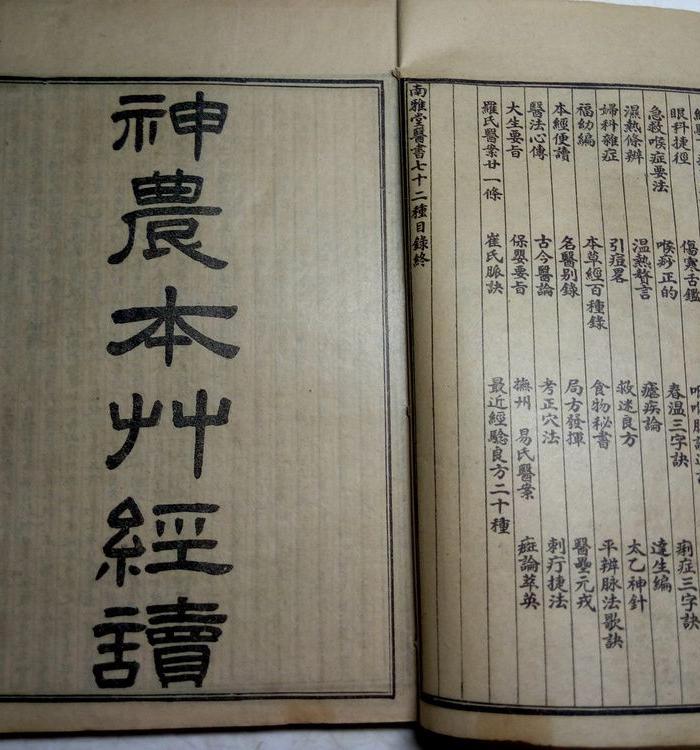 眼科捷徑 傷寒舌鑑
急救喉症要法 喉痧正的 春温三字訣 痢症三字訣
濕熱條辨 温熱贅言 瘧疾論 達生編
婦科雜症 引痘畧 救迷良方 太乙神針
福幼編 本草經百種錄 食物秘書 平辨脉法歌訣
本經便讀 名醫别錄 局方發揮 醫壘元戎
醫法心傳 古今醫論 考正穴法 刺疔捷法
大生要旨 保嬰要旨 撫州 易氏醫案 癍論萃英
羅氏醫案廿一條 崔氏脈訣 最近經驗良方二十種
南雅堂醫書七十二種目錄終
神農本艸經讀